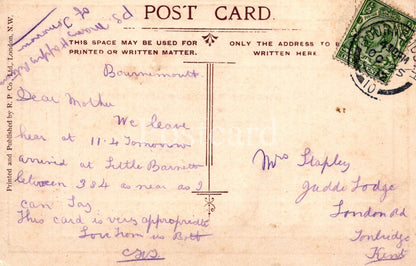 POST CARD
THIS SPACE MAY BE USED FOR
PRINTED OR WRITTEN MATTER.
ONLY THE ADDRESS TO BE
WRITTEN HERE.
Printed and Published by R. P. Co., Ltd., London, N.W.
PS Many Happy
of Tomorrow
Bournemouth.
Dear Mother
We leave
hear at 11.4 Tomorrow
arrived at Little Barnett
between 3 & 4 as near as I
can Say
This card is very appropriate
Love from us Both
Mrs Stapley
Judds Lodge
London Rd
Tonbridge
Kent